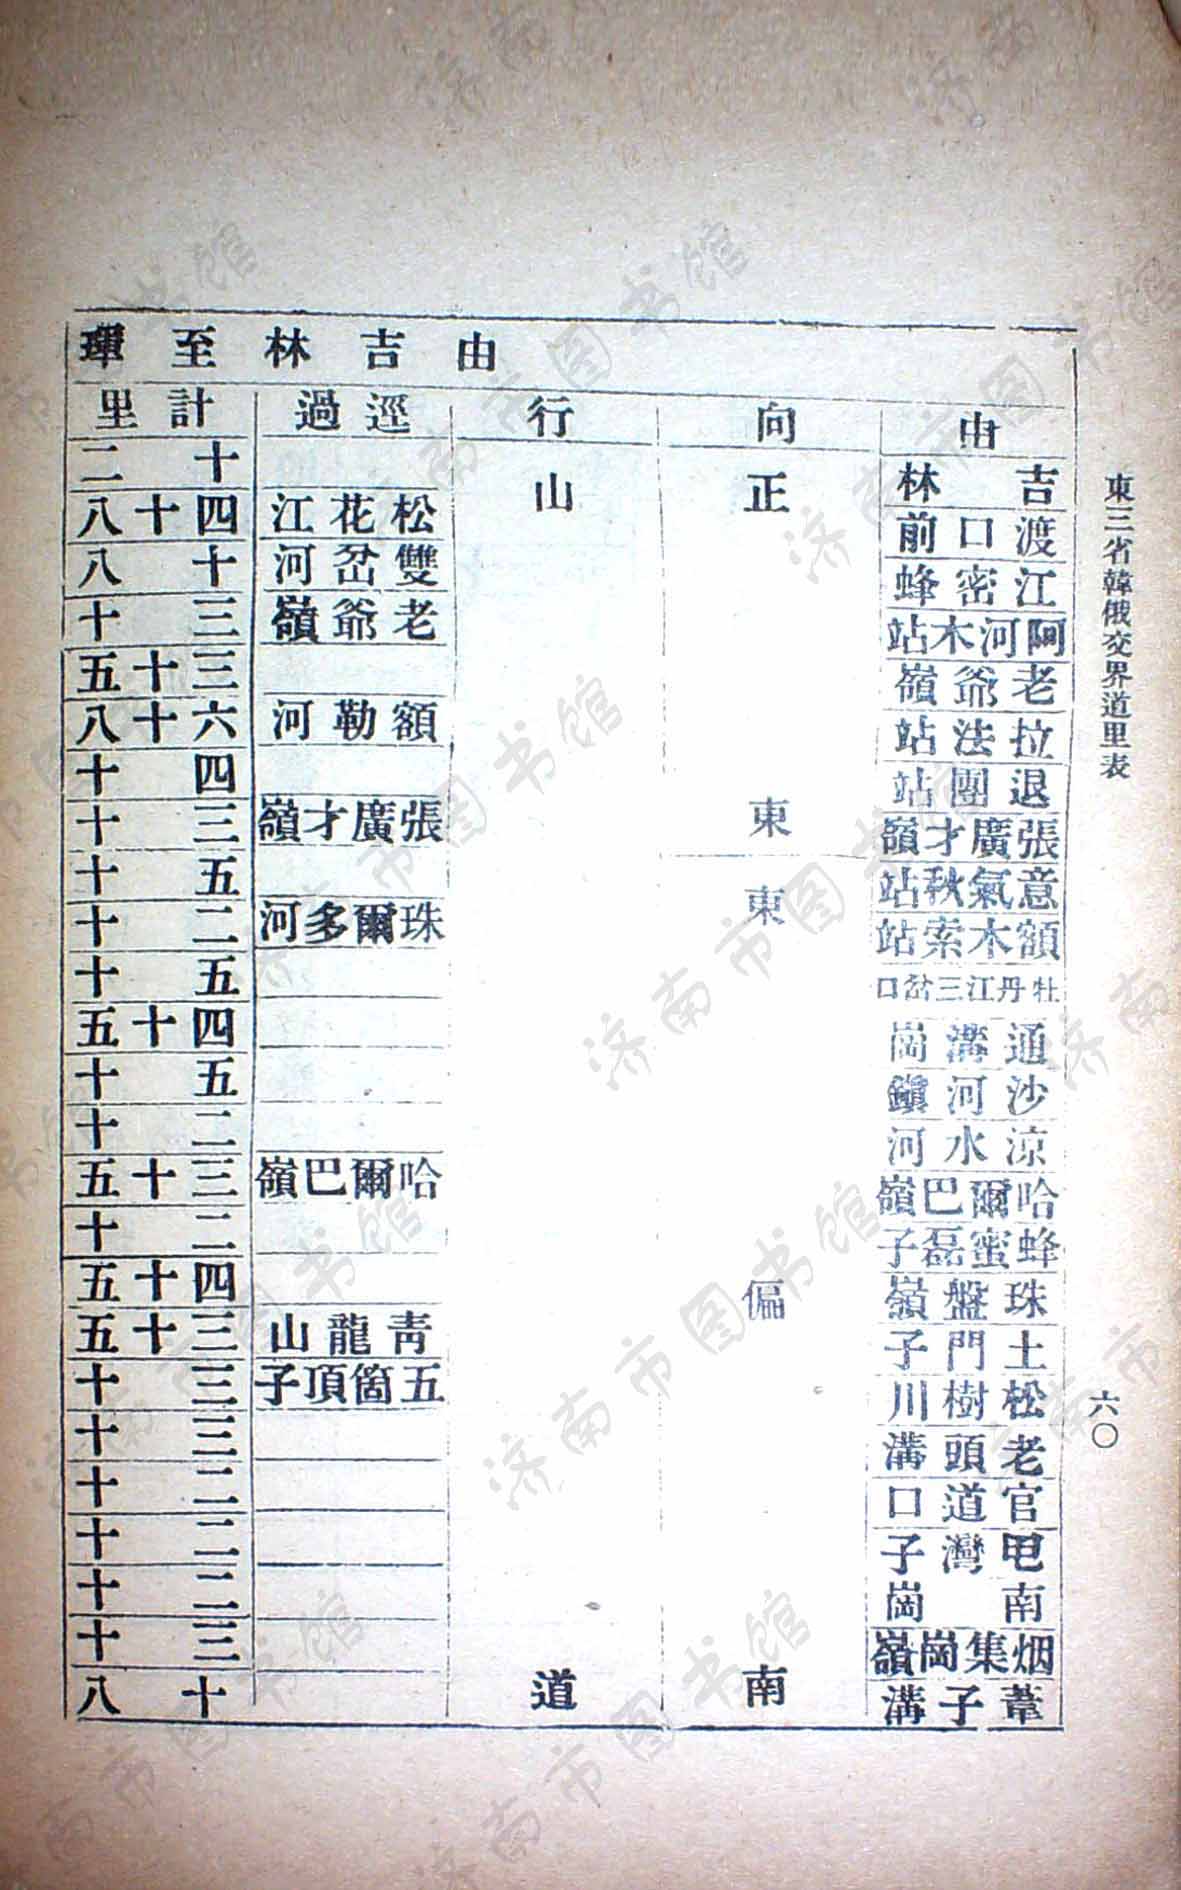 東三省韓俄交界道里表
六〇
由吉林至琿
由 向 行 逕過 計里
吉林 正東 山道 十二
渡口前 松花江 四十八
江密蜂 雙岔河 十八
阿河木站 老爺嶺 三十
老爺嶺 三十五
拉法站 額勒河 六十八
退團站 四十
張廣才嶺 張廣才嶺 三十
意氣秋站 東偏南 五十
額木索站 珠爾多河 二十
牡丹江三岔口 五十
通溝崗 四十五
沙河鎮 五十
涼水河 二十
哈爾巴嶺 哈爾巴嶺 三十五
蜂蜜磊子 二十
珠盤嶺 四十五
土門子 青龍山 三十五
松樹川 五箇頂子 三十
老頭溝 三十
官道口 二十
灣子 二十
南崗 二十
烟集崗嶺 三十
葦子溝 十八
济南市图书馆